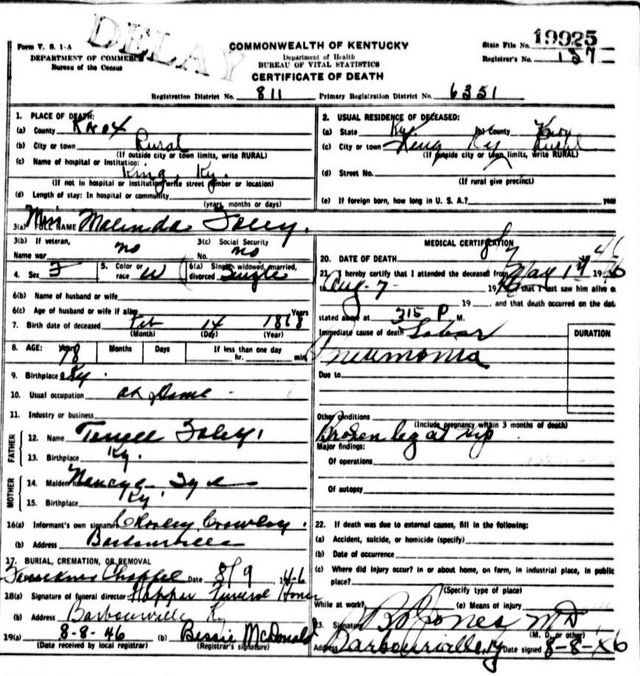 DELAY
Form V. S. 1-A
DEPARTMENT OF COMMERCE
Bureau of the Census
COMMONWEALTH OF KENTUCKY
Department of Health
BUREAU OF VITAL STATISTICS
CERTIFICATE OF DEATH
State File No. 19925
Registrar's No. 157
Registration District No. 811 Primary Registration District No. 6351
1. PLACE OF DEATH:
(a) County Knox
(b) City or town Rural
(If outside city or town limits, write RURAL)
(c) Name of hospital or institution:
King, Ky.
(If not in hospital or institution write street number or location)
(d) Length of stay: In hospital or community
(years, months or days)
2. USUAL RESIDENCE OF DECEASED:
(a) State Ky (b) County Knox
(c) City or town King Ky Rural
(If outside city or town limits, write RURAL)
(d) Street No.
(If rural give precinct)
(e) If foreign born, how long in U. S. A.? years
3(a) FULL NAME Malinda Foley.
3(b) If veteran, name war no
3(c) Social Security No. no
4. Sex F
5. Color or race W
6(a) Single, widowed, married, divorced Single
6(b) Name of husband or wife
6(c) Age of husband or wife if alive Years
7. Birth date of deceased Feb 14 1868
(Month) (Day) (Year)
8. AGE: Years 78 Months Days If less than one day hr. min.
9. Birthplace Ky.
10. Usual occupation at Dome
11. Industry or business
FATHER
12. Name Foley
13. Birthplace Ky.
MOTHER
14. Maiden Name Nancy
15. Birthplace Ky.
16(a) Informant's own signature Crowley
(b) Address Barbourville
17. BURIAL, CREMATION, OR REMOVAL
Chappel Date 8/9 1946
18(a) Signature of funeral director Hopper Funeral Home
(b) Address Barbourville Ky
19(a) 8-8-46 (b) Bessie McDonald
(Date received by local registrar) (Registrar's signature)
MEDICAL CERTIFICATION
20. DATE OF DEATH 46
21. I hereby certify that I attended the deceased from May 19 1946
Aug-7- 19 that I last saw him alive on
19 and that death occurred on the date
stated above at 315 P. M.
Immediate cause of death Lobar
Pneumonia
DURATION
Due to
Other conditions
(Include pregnancy within 3 months of death)
Broken leg at hip
Major findings:
Of operations
Of autopsy
22. If death was due to external causes, fill in the following:
(a) Accident, suicide, or homicide (specify)
(b) Date of occurrence
(c) Where did injury occur? in or about home, on farm, in industrial place, in public
place?
(Specify type of place)
While at work? (e) Means of injury
23. Signature Jones MD
(M. D. or other)
Address Barbourville, Ky Date signed 8-8-46